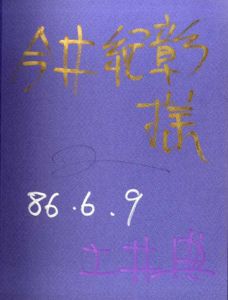 今井紀彰
様
86.6.9